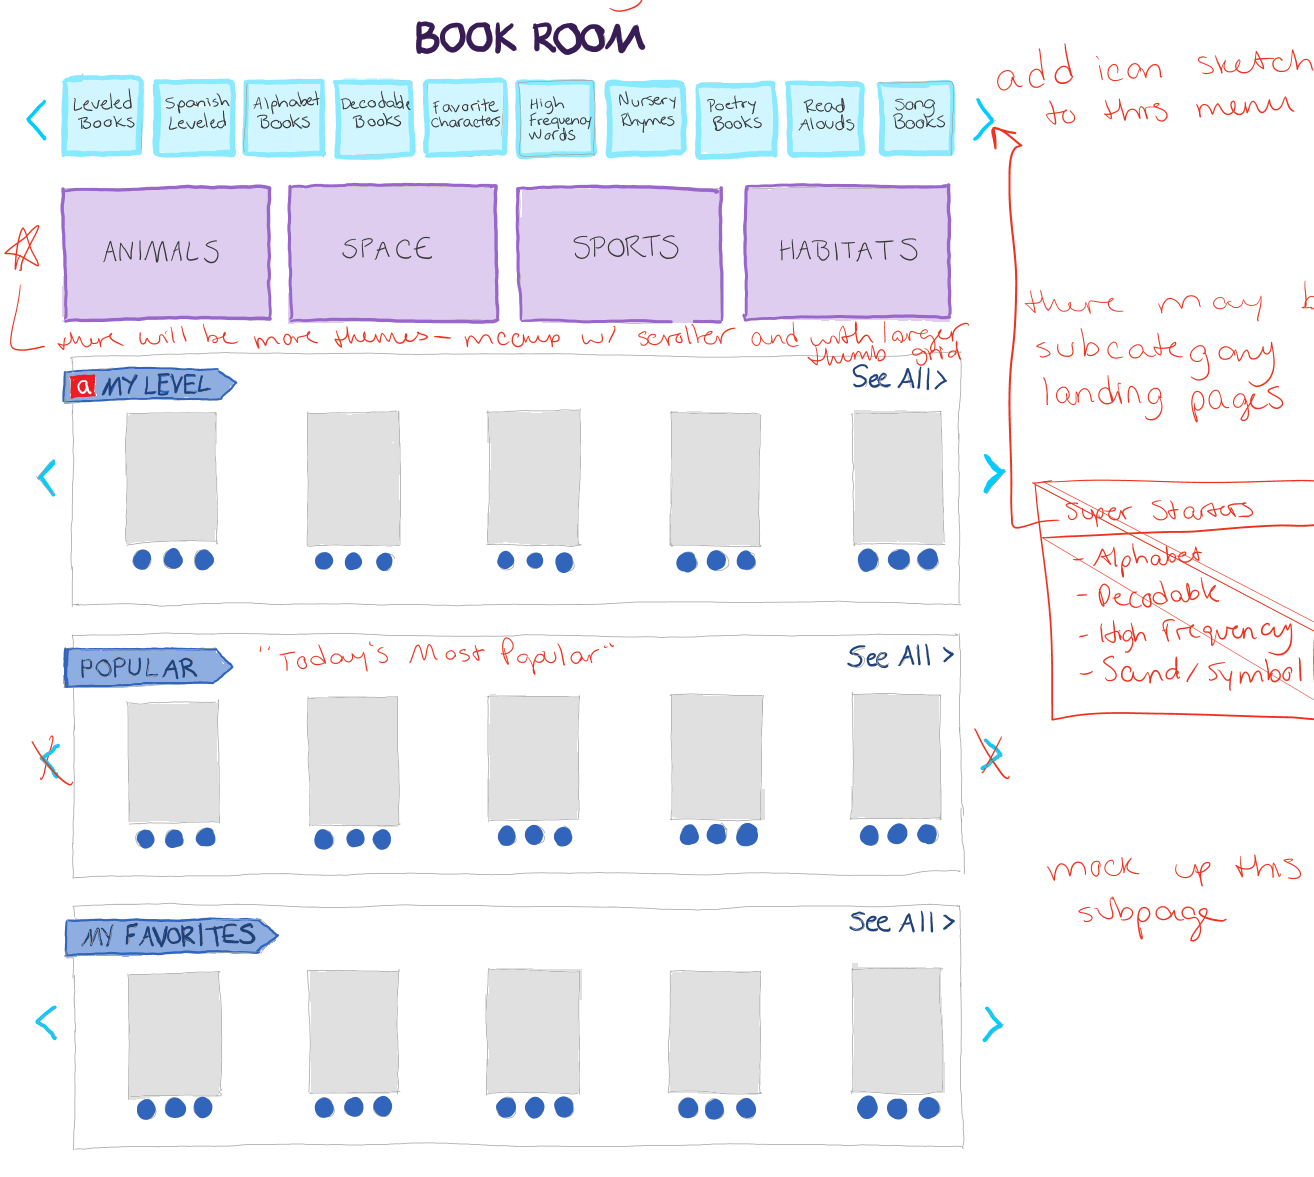 BOOK ROOM
Leveled
Books
Spanish
Leveled
Alphabet
Books
Decodable
Books
Favorite
Characters
High
Frequency
Words
Nursery
Rhymes
Poetry
Books
Read
Alouds
Song
Books
add icon sketch
to this menu
ANIMALS
SPACE
SPORTS
HABITATS
there will be more themes - mockup w/ scroller and with larger
thumb grid
there may b
subcategory
landing pages
a MY LEVEL
See All >
Super Starters
- Alphabet
- Decodable
- High Frequency
- Sand/symbol
POPULAR
"Today's Most Popular"
See All >
mock up this
subpage
MY FAVORITES
See All >